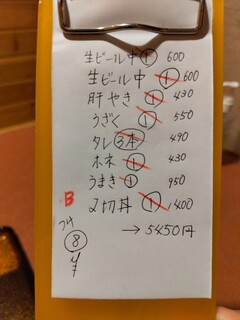 生ビール中 ① 600
生ビール中 ① 600
肝やき ① 430
うざく ① 550
タレ 3本 490
ホネ ① 430
うまき ① 950
2切丼 ① 1400
→ 5450円
B
⑧